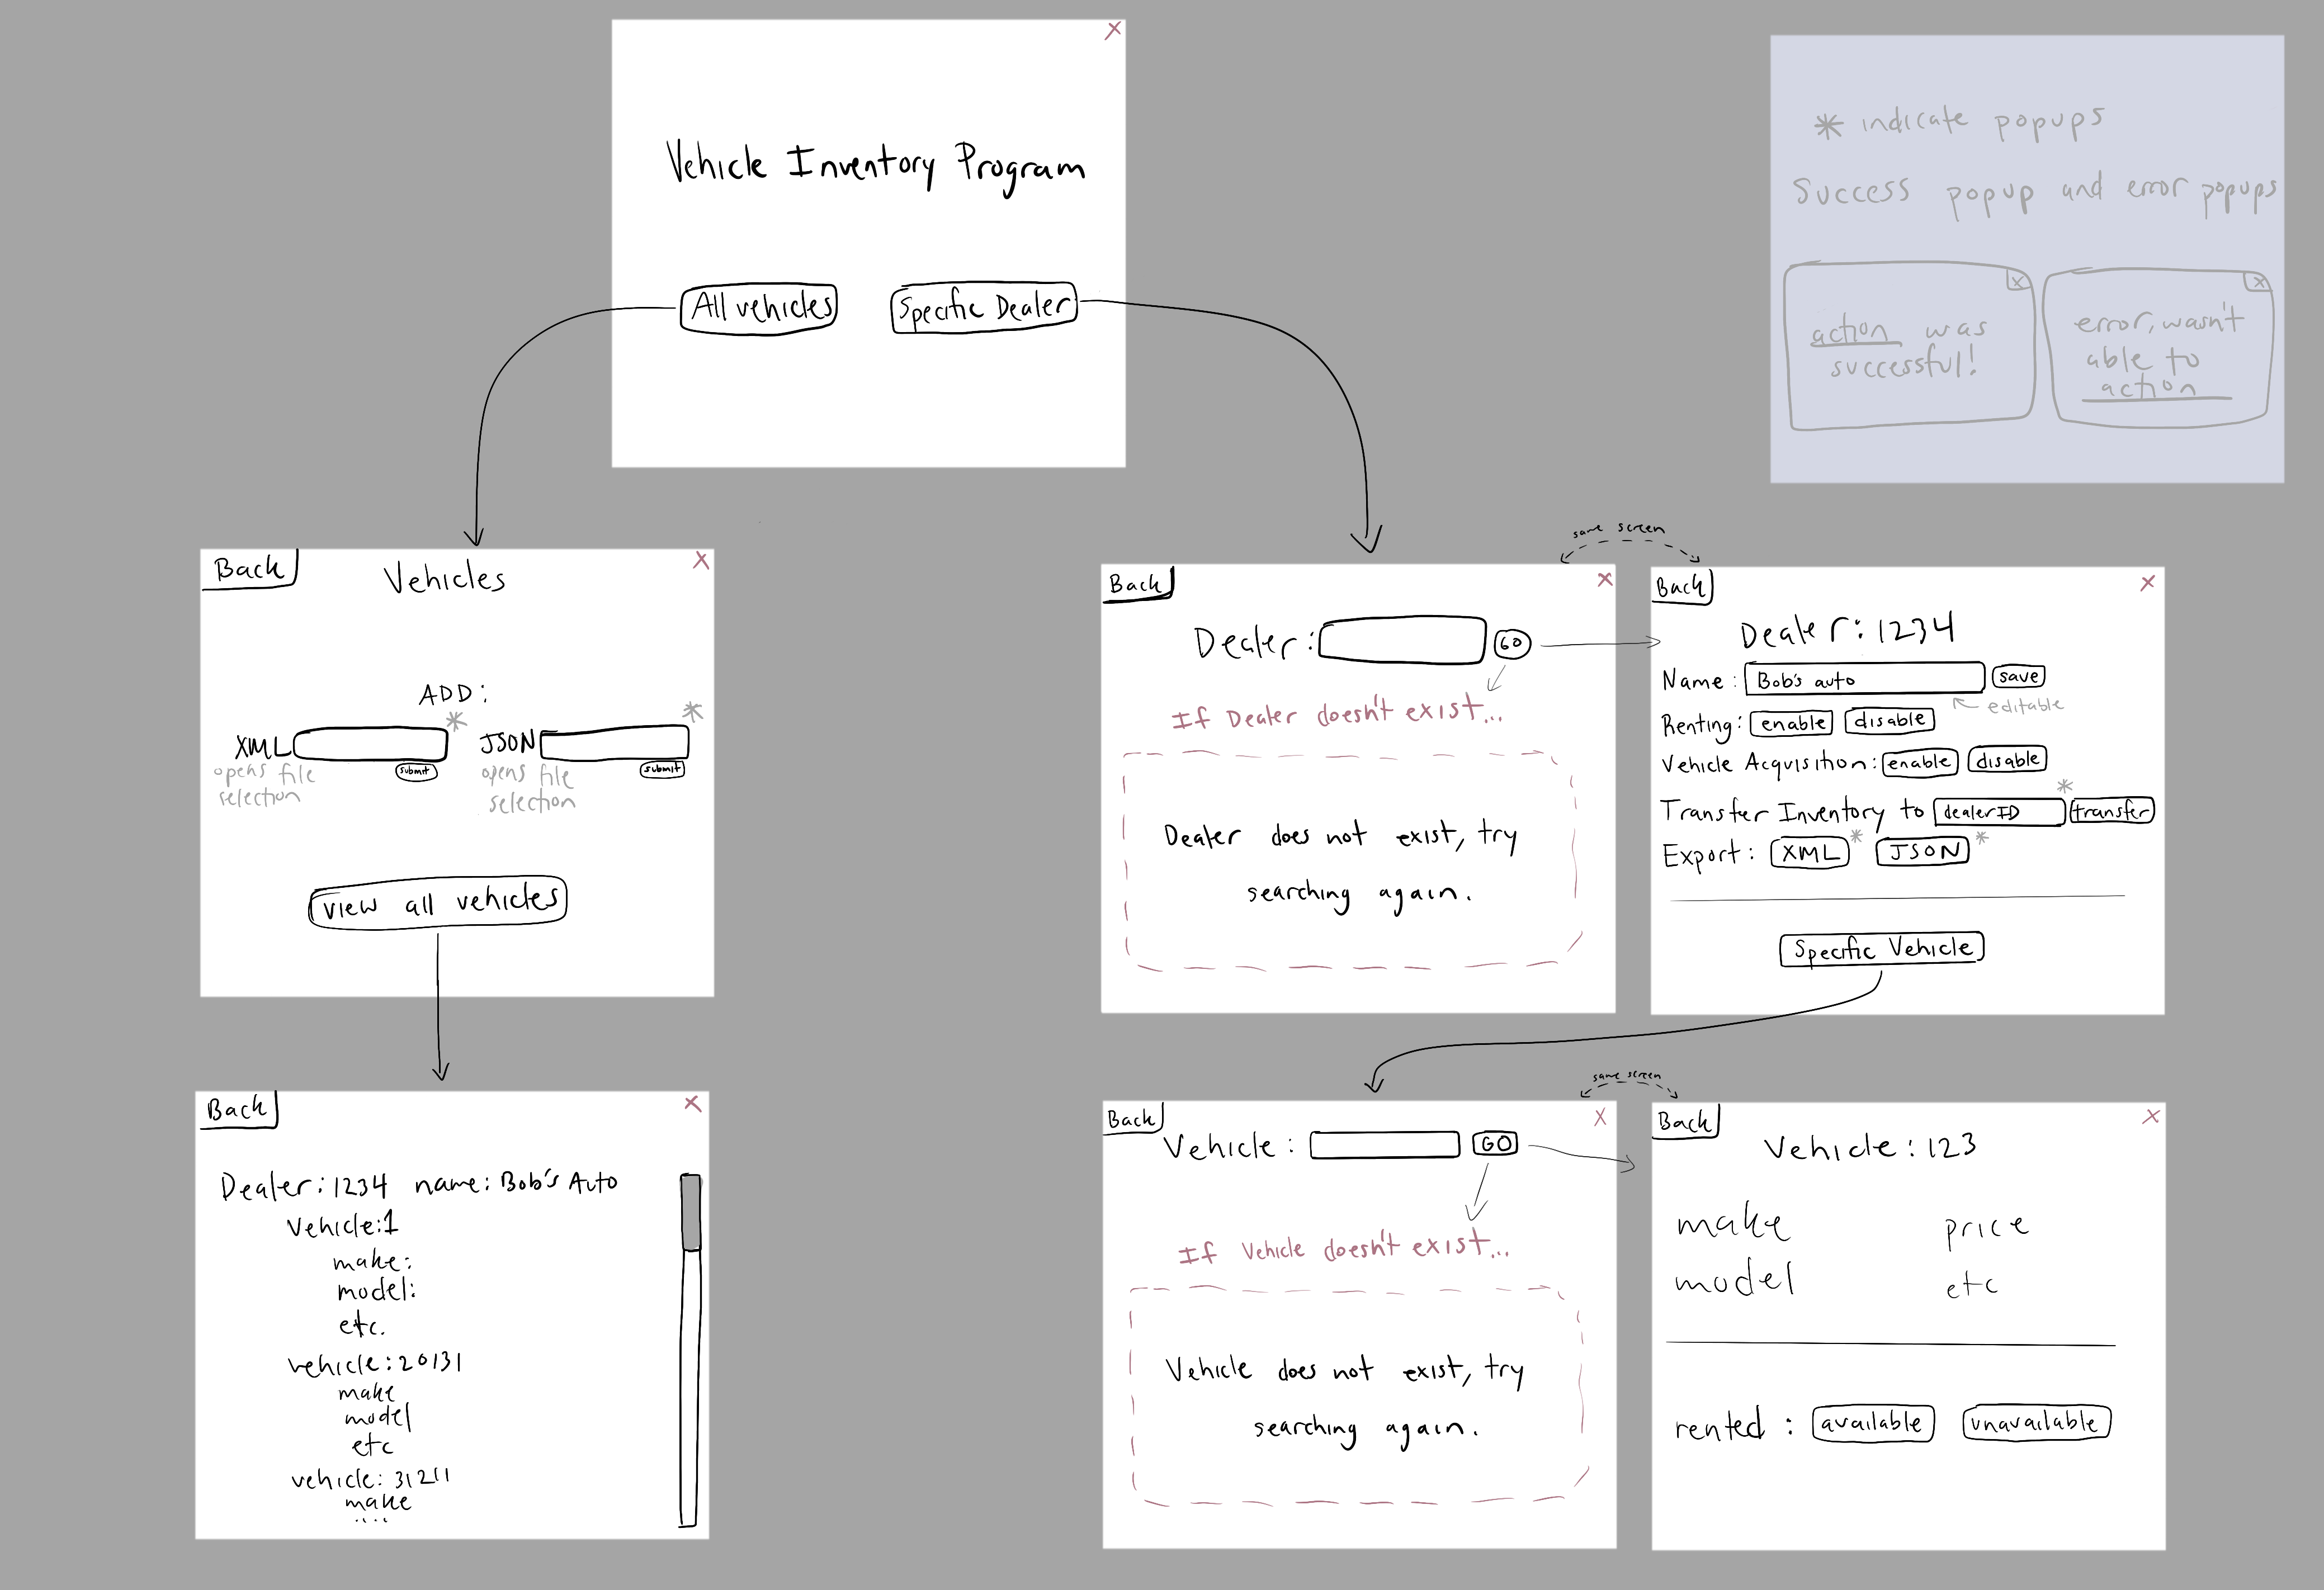 X
Vehicle Inventory Program
All vehicles
Specific Dealer
* indicate popups
Success popup and error popups
X
action was
successful!
X
error, wasn't
able to
action
Back
Vehicles
X
ADD:
XML
*
submit
opens file
selection
JSON
*
submit
opens file
selection
view all vehicles
Back
X
Dealer: 1234 name: Bob's Auto
Vehicle: 1
make:
model:
etc.
vehicle: 20131
make
model
etc
vehicle: 31211
make
.....
same screen
Back
X
Dealer:
GO
If Dealer doesn't exist...
Dealer does not exist, try
searching again.
Back
X
Dealer: 1234
Name: Bob's auto save
editable
Renting: enable disable
Vehicle Acquisition: enable disable
*
Transfer Inventory to dealerID transfer
Export: XML * JSON *
Specific Vehicle
same screen
Back
X
Vehicle:
GO
If Vehicle doesn't exist...
Vehicle does not exist, try
searching again.
Back
X
Vehicle: 123
make price
model etc
rented: available unavailable